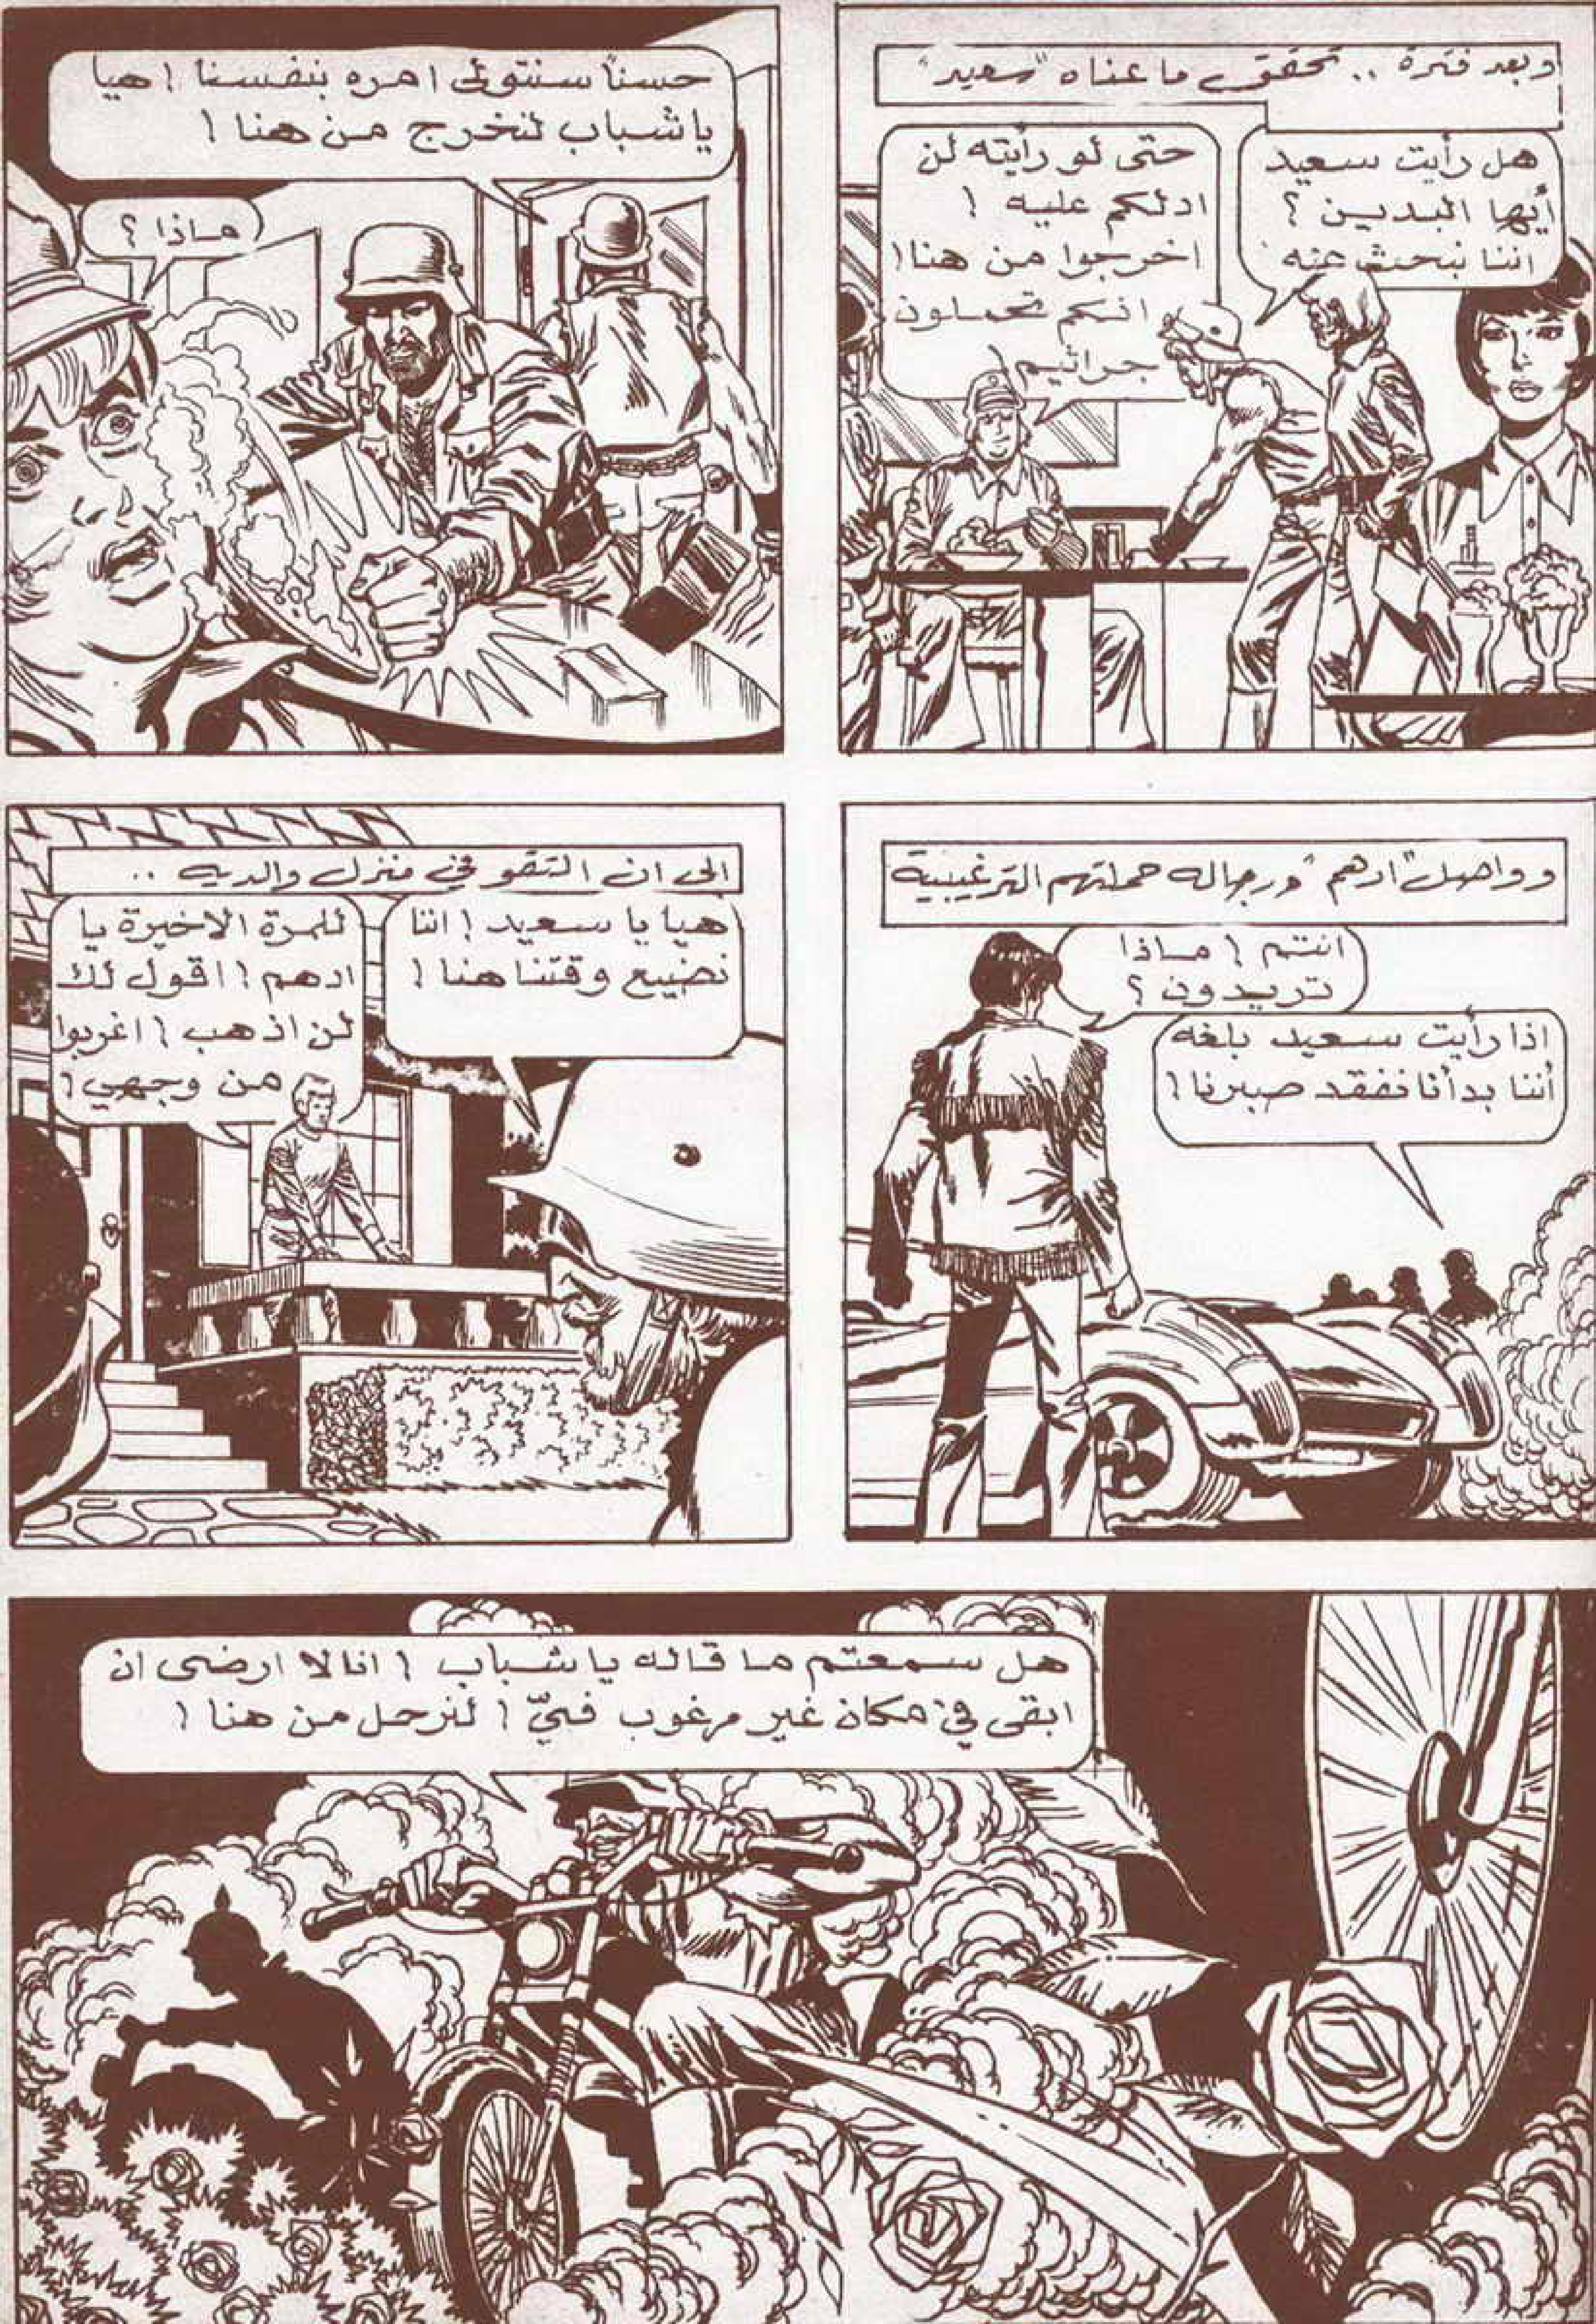 وبعد فترة .. تحقق ما عناه "سعيد"
هل رأيت سعيد
أيها البدين ؟
اننا نبحث عنه
حتى لو رأيته لن
ادلكم عليه !
اخرجوا من هنا !
انكم تحملون
جراثيم
حسناً سنتولى امره بنفسنا ! هيا
يا شباب لنخرج من هنا !
ماذا ؟
وواصل "ادهم" ورجاله حملتهم الترغيبية
انتم ! ماذا
تريدون ؟
اذا رأيت سعيد بلغه
أننا بدأنا نفقد صبرنا !
الى ان التقو في منزل والديه ..
هيا يا سعيد ! اننا
نضيع وقتنا هنا !
للمرة الاخيرة يا
ادهم ! اقول لك
لن اذهب ! اغربوا
من وجهي !
هل سمعتم ما قاله يا شباب ! انا لا ارضى ان
ابقى في مكان غير مرغوب فيّ ! لنرحل من هنا !